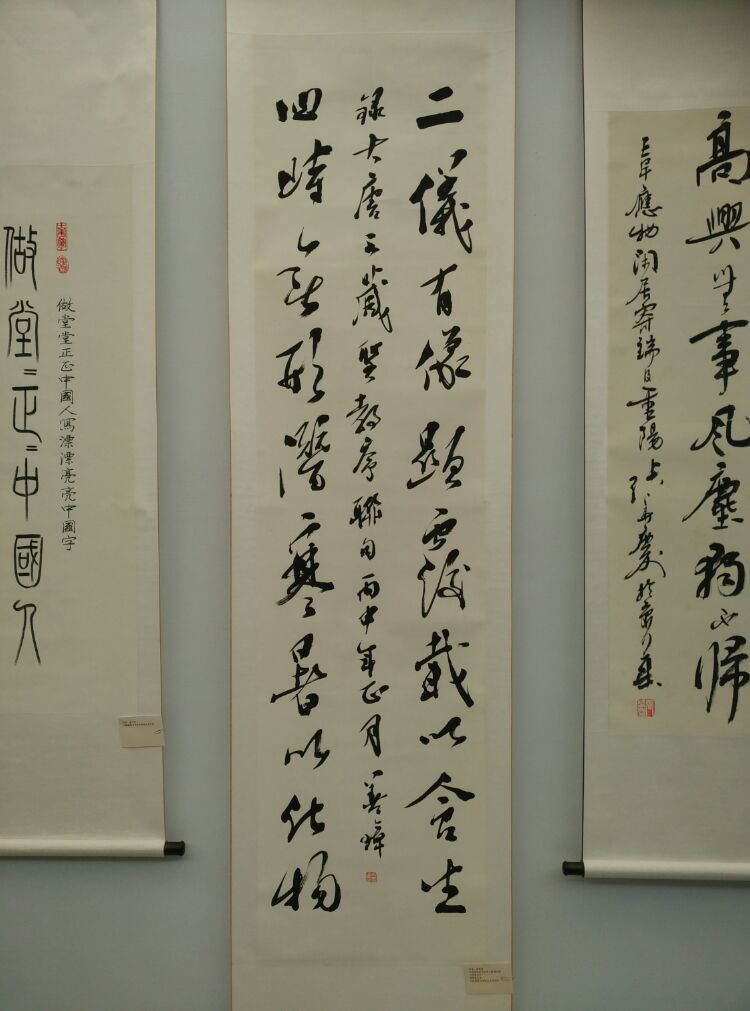 高興無事風塵獨不歸
韋應物閒居寄端及重陽
二儀有像顯覆載以含生
錄大唐三藏聖教序聯句丙申年正月善
四時無形潛寒暑以化物
做堂堂正正中國人寫漂漂亮亮中國字
做堂〻正〻中國人